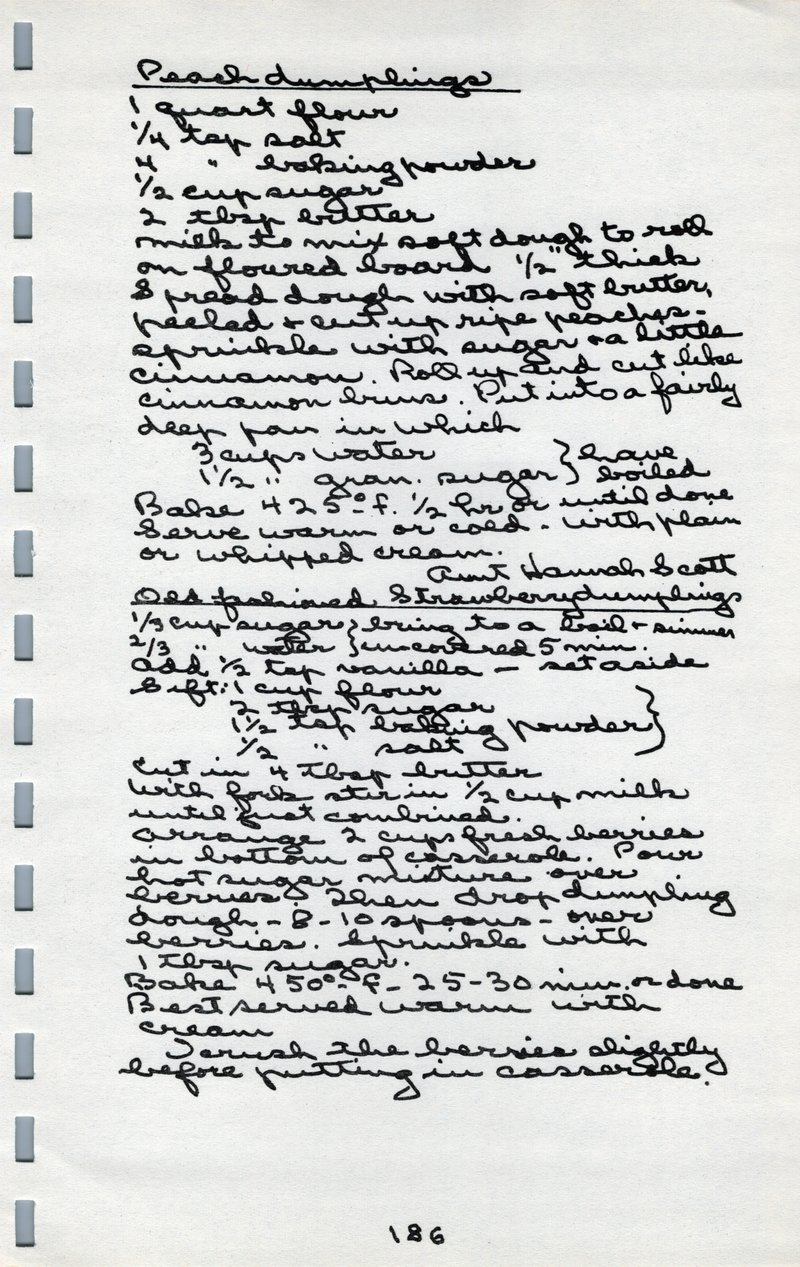 Peach dumplings
1 quart flour
1/4 tsp salt
4 " baking powder
1/2 cup sugar
2 tbsp butter
milk to mix soft dough to roll
on floured board 1/2" thick
Spread dough with soft butter,
peeled + cut up ripe peaches -
sprinkle with sugar + a little
cinnamon. Roll up and cut like
cinnamon buns. Put into a fairly
deep pan in which
3 cups water } have
1 1/2 " gran. sugar } boiled
Bake 425° f. 1/2 hr or until done
Serve warm or cold - with plain
or whipped cream.
Aunt Hannah Scott
Old fashioned Strawberry dumplings
1/3 cup sugar } bring to a boil + simmer
2/3 " water } uncovered 5 min.
add 1/2 tsp vanilla - set aside
Sift: 1 cup flour
2 tbsp sugar
1 1/2 tsp baking powder }
1/2 " salt
Cut in 4 tbsp butter
With fork stir in 1/2 cup milk
until just combined.
Arrange 2 cups fresh berries
in bottom of casserole. Pour
hot sugar mixture over
berries. Then drop dumpling
dough - 8-10 spoons - over
berries. Sprinkle with
1 tbsp sugar.
Bake 450° - f - 25-30 min. or done
Best served warm with
cream
I crush the berries slightly
before putting in casserole.
186